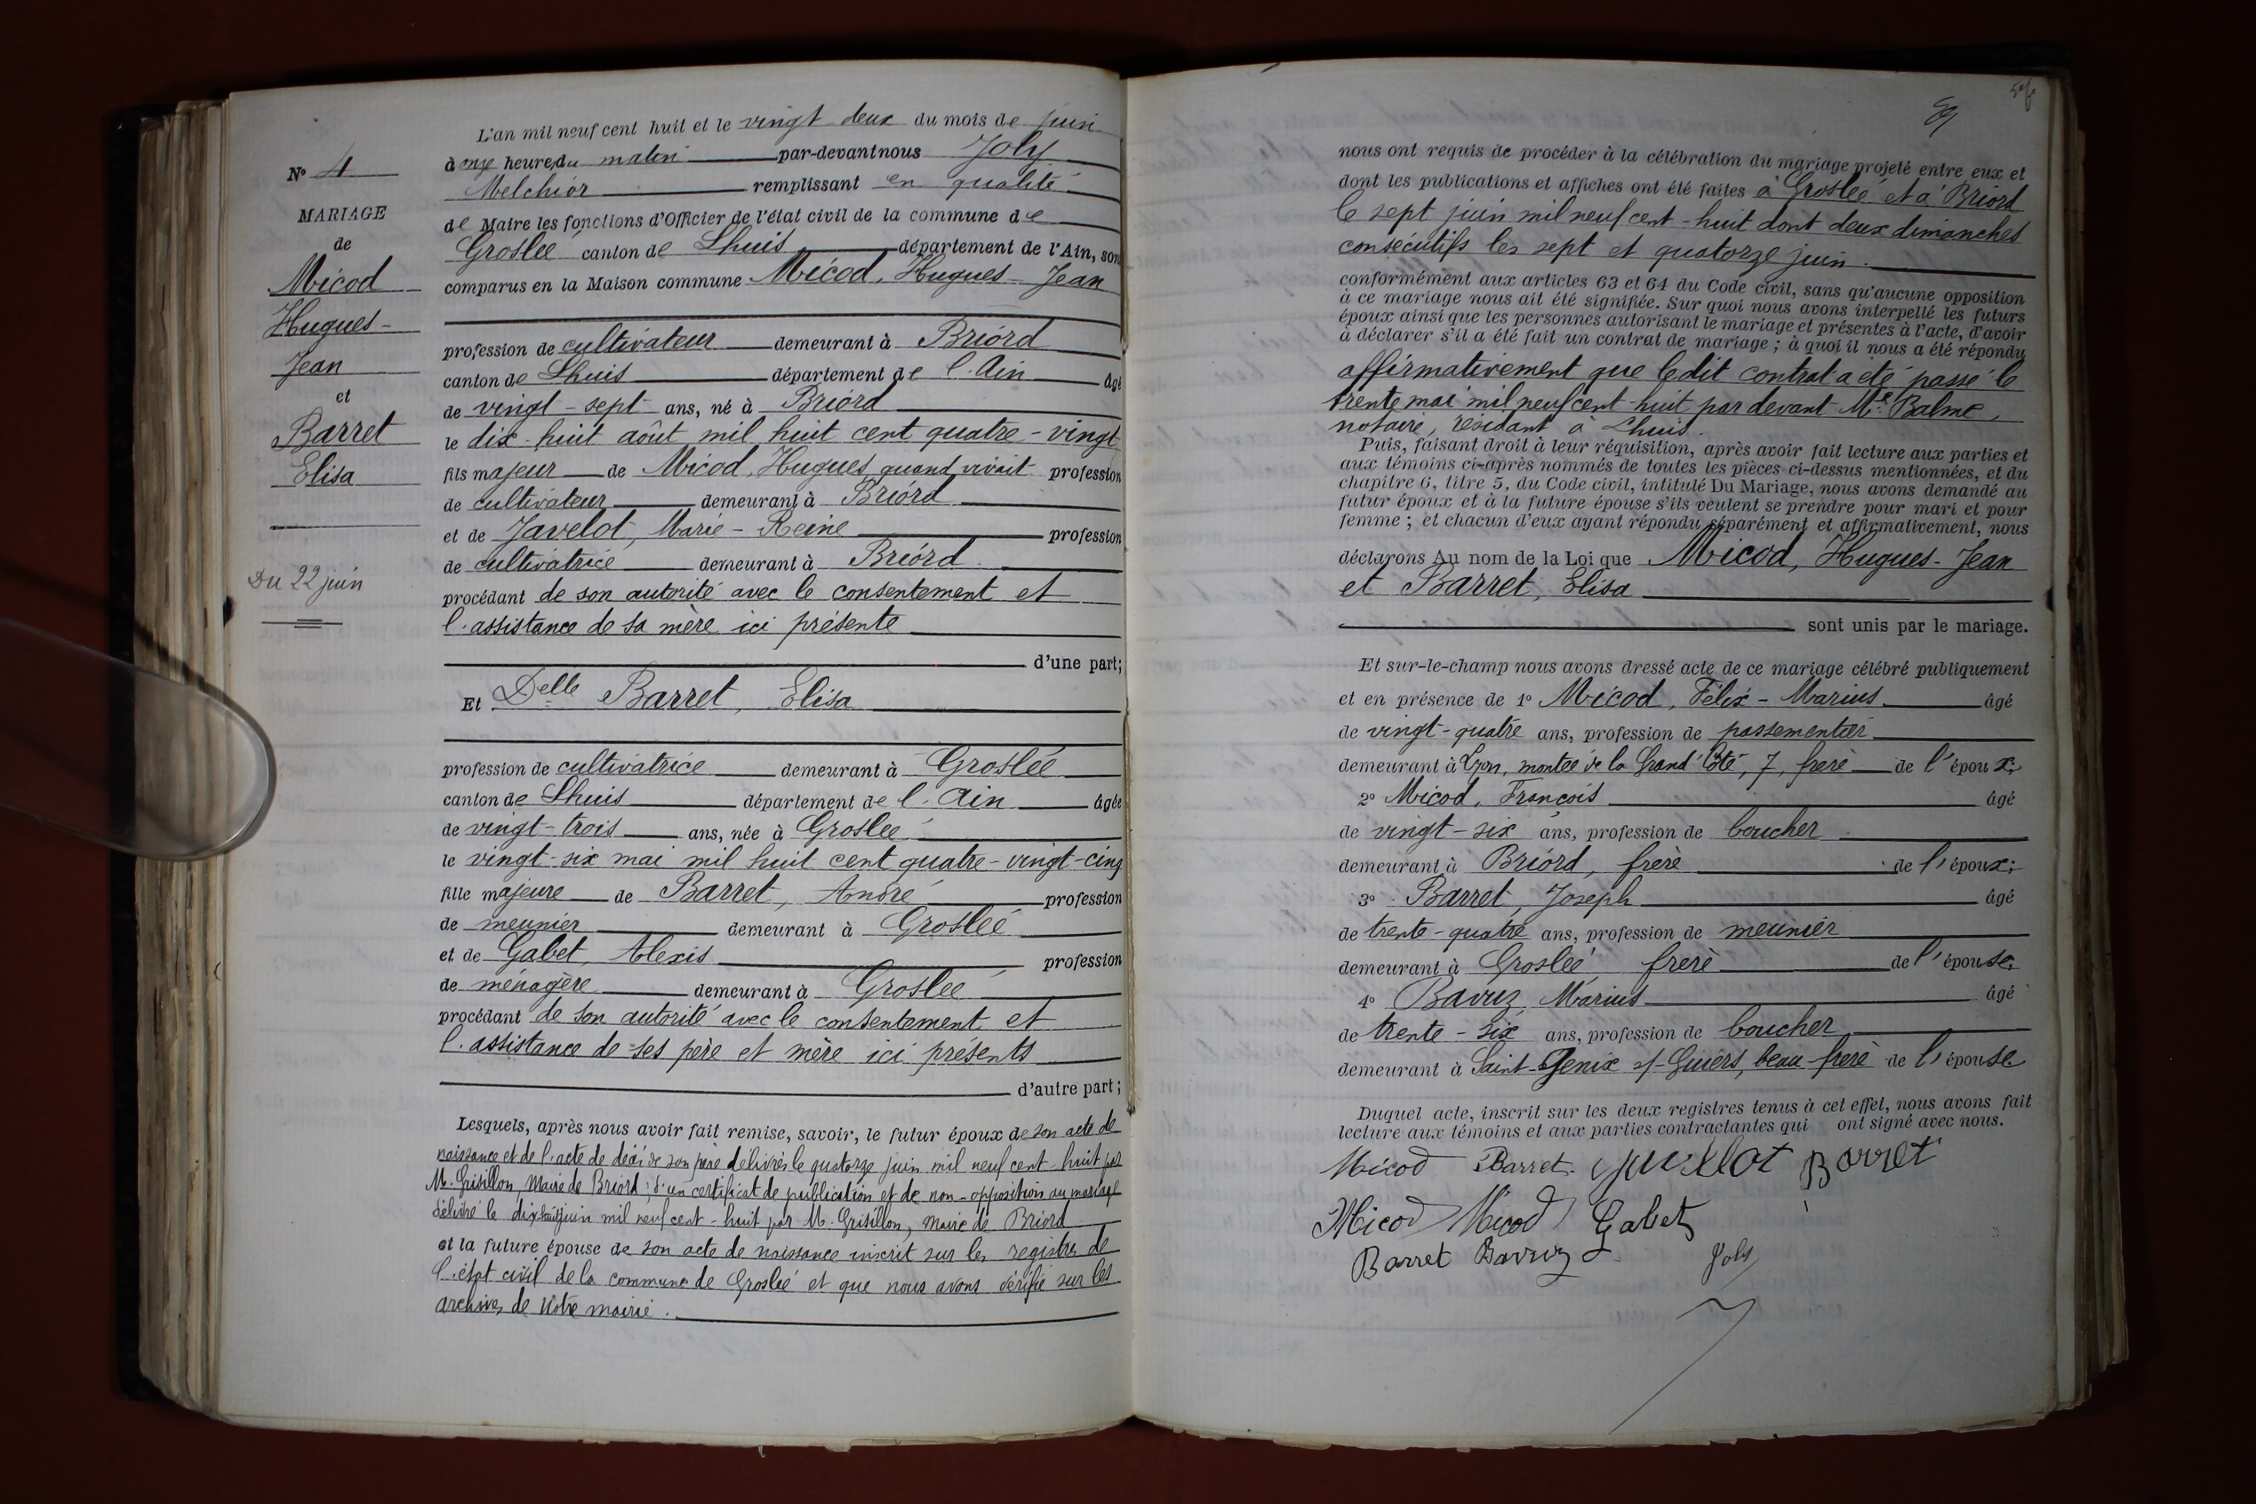 N° 4
MARIAGE
de
Micod
Hugues-
Jean
et
Barret
Elisa
Du 22 juin
L'an mil neuf cent huit et le vingt deux du mois de juin
à onze heures du matin par-devant nous Joly
Melchior remplissant en qualité
de Maire les fonctions d'Officier de l'état civil de la commune de
Groslée canton de Lhuis département de l'Ain, sont
comparus en la Maison commune Micod, Hugues-Jean
profession de cultivateur demeurant à Briord
canton de Lhuis département de l'Ain âgé
de vingt-sept ans, né à Briord
le dix-huit août mil huit cent quatre-vingt
fils majeur de Micod Hugues quand vivait profession
de cultivateur demeurant à Briord
et de Javelot, Marie-Reine profession
de cultivatrice demeurant à Briord
procédant de son autorité avec le consentement et
l'assistance de sa mère ici présente
d'une part;
Et Delle Barret, Elisa
profession de cultivatrice demeurant à Groslée
canton de Lhuis département de l'Ain âgée
de vingt-trois ans, née à Groslée
le vingt-six mai mil huit cent quatre-vingt-cinq
fille majeure de Barret, André profession
de meunier demeurant à Groslée
et de Gabet, Alexis profession
de ménagère demeurant à Groslée
procédant de son autorité avec le consentement et
l'assistance de ses père et mère ici présents
d'autre part;
Lesquels, après nous avoir fait remise, savoir, le futur époux de son acte de
naissance et de l'acte de décès de son père délivrés le quatorze juin mil neuf cent huit par
M. Grisillon, Maire de Briord; d'un certificat de publication et de non-opposition au mariage
délivré le dix-huit juin mil neuf cent-huit par M. Grisillon, maire de Briord
et la future épouse de son acte de naissance inscrit sur les registres de
l'état civil de la commune de Groslée et que nous avons vérifié sur les
archives de notre mairie.
nous ont requis de procéder à la célébration du mariage projeté entre eux et
dont les publications et affiches ont été faites à Groslée et à Briord
le sept juin mil neuf cent-huit dont deux dimanches
consécutifs les sept et quatorze juin.
conformément aux articles 63 et 64 du Code civil, sans qu'aucune opposition
à ce mariage nous ait été signifiée. Sur quoi nous avons interpellé les futurs
époux ainsi que les personnes autorisant le mariage et présentes à l'acte, d'avoir
à déclarer s'il a été fait un contrat de mariage; à quoi il nous a été répondu
affirmativement que ledit contrat a été passé le
trente mai mil neuf cent-huit par devant Me Balme,
notaire, résidant à Lhuis.
Puis, faisant droit à leur réquisition, après avoir fait lecture aux parties et
aux témoins ci-après nommés de toutes les pièces ci-dessus mentionnées, et du
chapitre 6, titre 5, du Code civil, intitulé Du Mariage, nous avons demandé au
futur époux et à la future épouse s'ils veulent se prendre pour mari et pour
femme; et chacun d'eux ayant répondu séparément et affirmativement, nous
déclarons Au nom de la Loi que Micod, Hugues-Jean
et Barret, Elisa
sont unis par le mariage.
Et sur-le-champ nous avons dressé acte de ce mariage célébré publiquement
et en présence de 1° Micod, Félix-Marius âgé
de vingt-quatre ans, profession de passementier
demeurant à Lyon, montée de la Grand'Côte, 7, frère de l'époux;
2° Micod, François âgé
de vingt-six ans, profession de boucher
demeurant à Briord, frère de l'époux;
3° Barret, Joseph âgé
de trente-quatre ans, profession de meunier
demeurant à Groslée, frère de l'épouse;
4° Bavuz, Marius âgé
de trente-six ans, profession de boucher
demeurant à Saint-Genix s/-Guiers, beau-frère de l'épouse
Duquel acte, inscrit sur les deux registres tenus à cet effet, nous avons fait
lecture aux témoins et aux parties contractantes qui ont signé avec nous.
Micod Barret Javelot Barret
Micod Micod Gabet
Barret Bavuz Joly